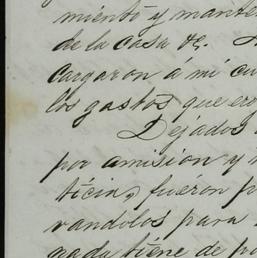 miento y mante
de la casa &c.
cargaron á mi cu
los gastos que ero
Dejados
por amision y
ticia, fuéron p
vandolos para
nada tiéne de po